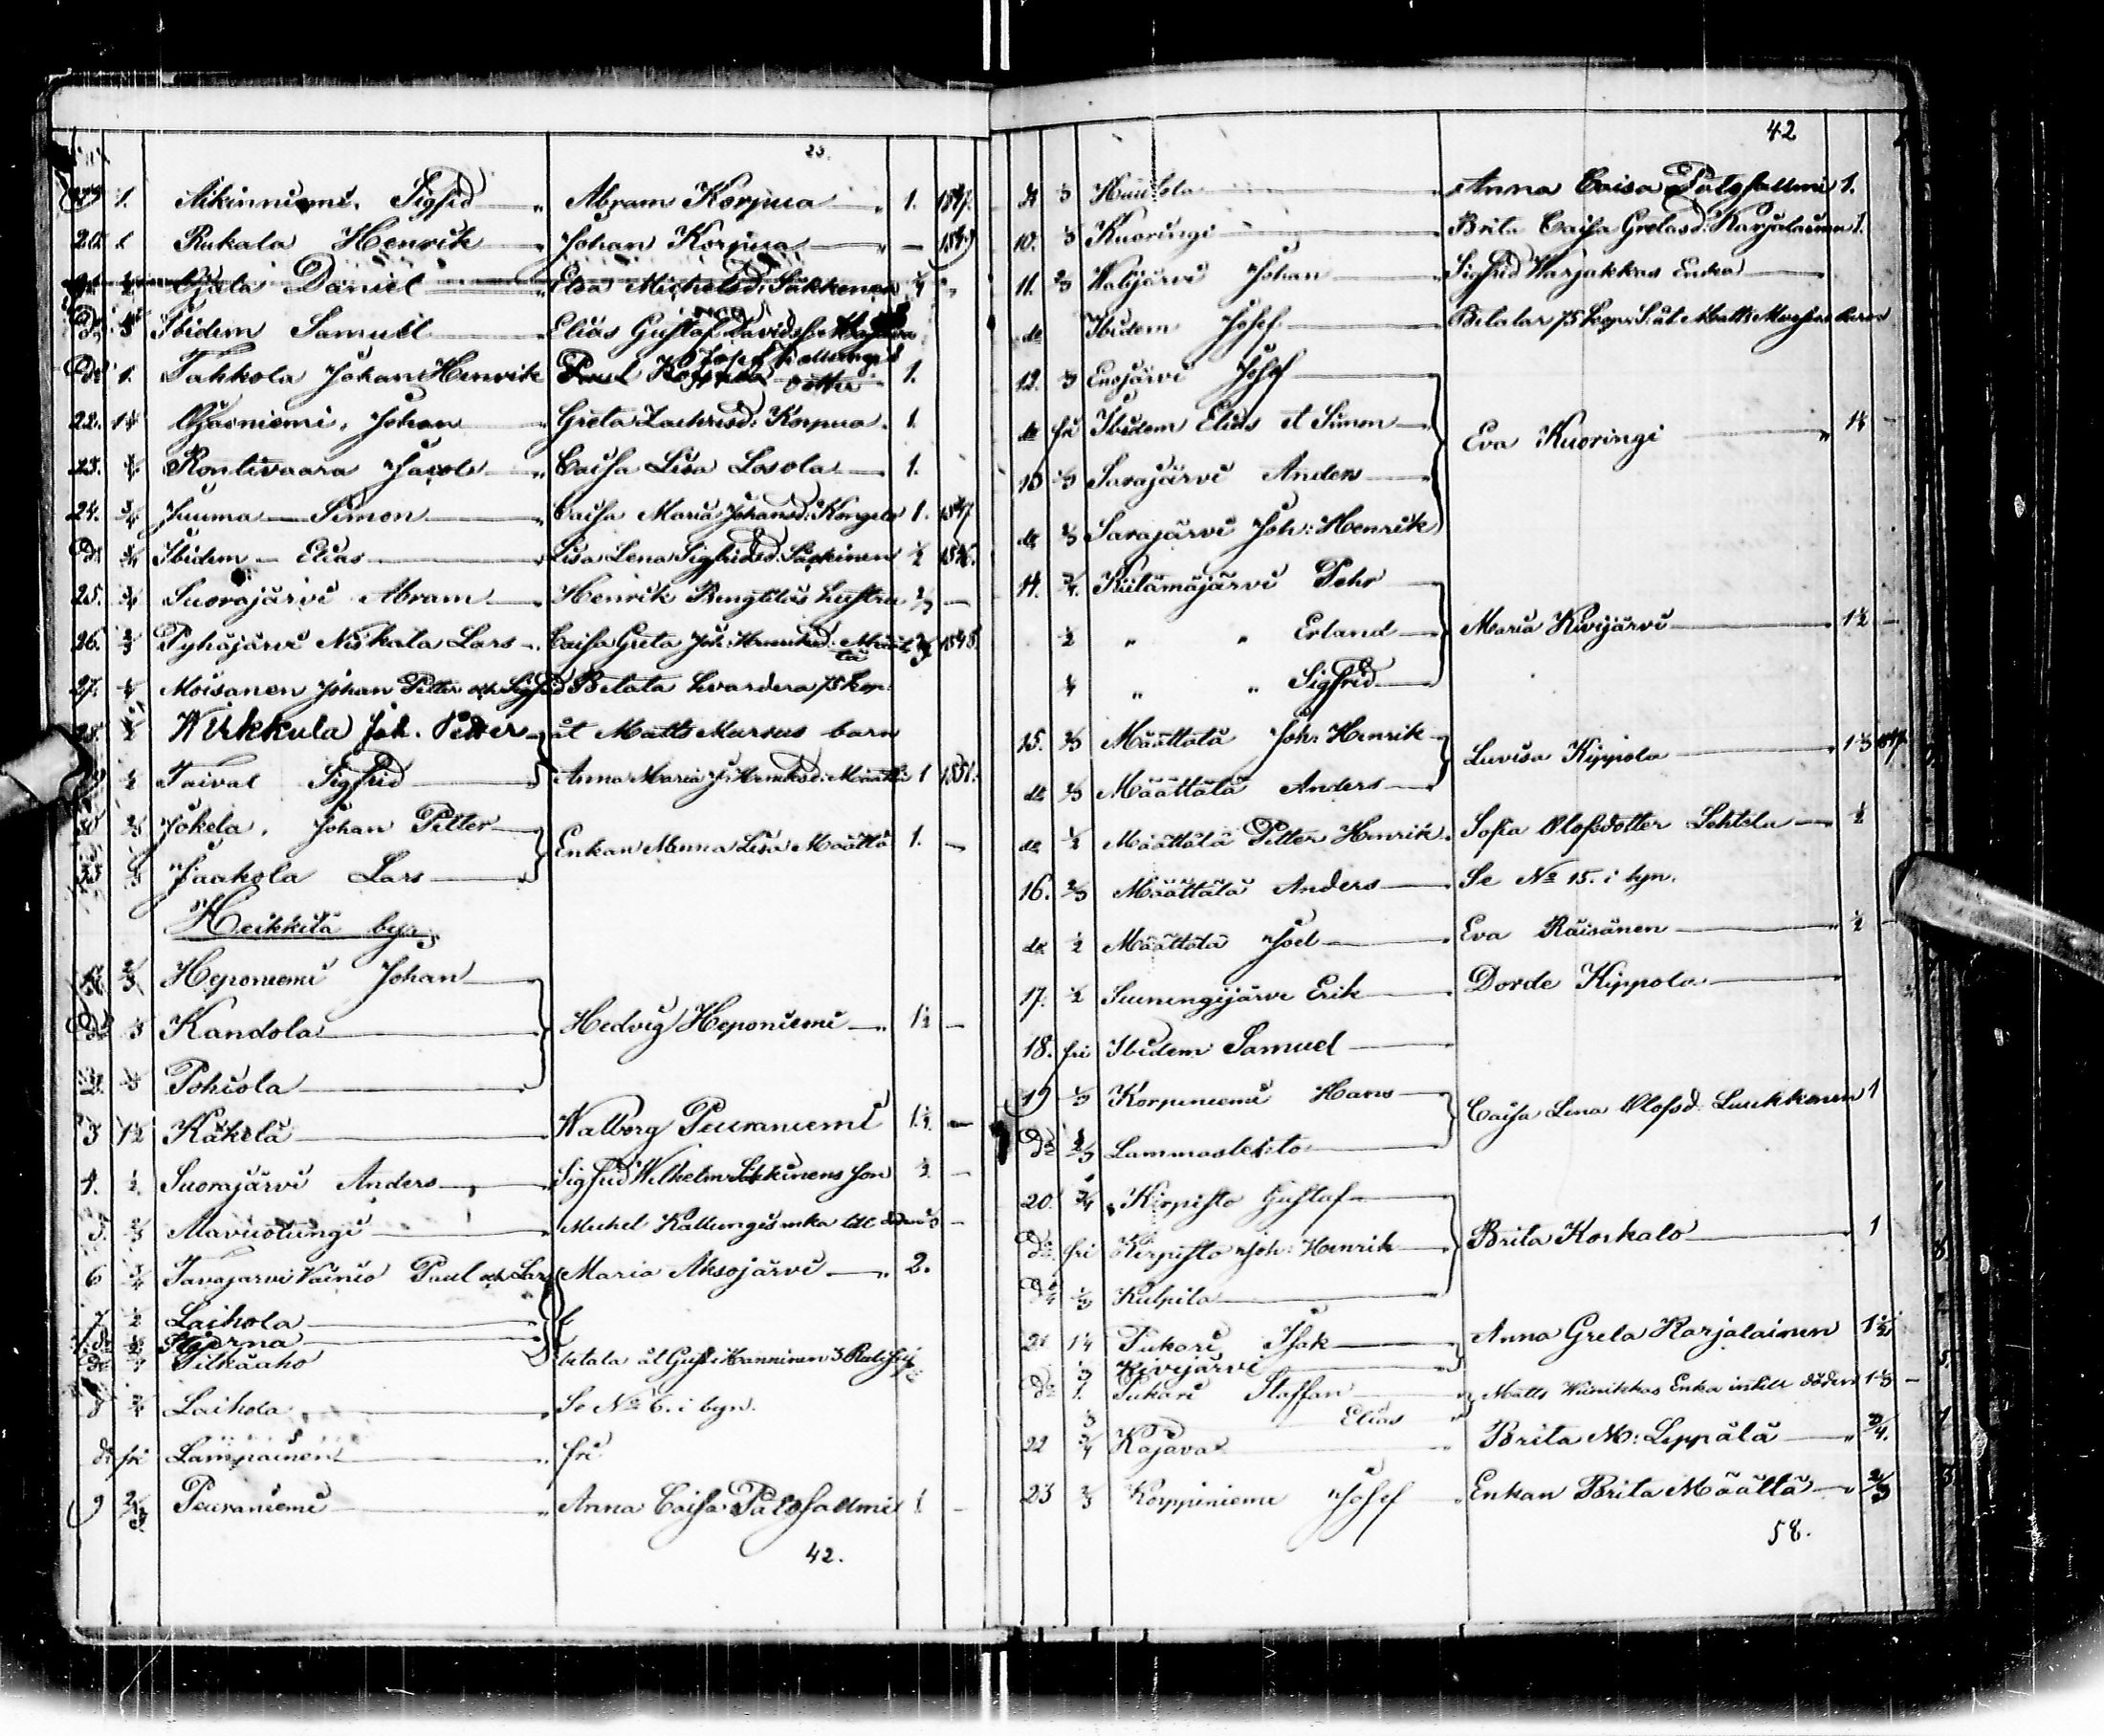 23.
19 1. Aikinniemi, Sigfrid Abram Korpua 1. 1847.
20. 1 Rukala Henrik Johan Korpua 1849
Ojala Daniel Elsa Michelsd: Säkkinen
Do Ibidem Samuel Elias Gustaf Davidss:
Do 1. Tahkola Johan Henrik Josef Kallungis dotter 1.
22. 1¼ Ojaniemi, Johan Greta Zachrisd: Korpua. 1.
23. Rontivaara Jacob Caisa Lisa Losola 1.
24. ¾ Juuma Simon Caisa Maria Johansd: Kongelo 1. 1847
Do ¾ Ibidem Elias Lisa Lena Sigfridsd: Säckinen ½ 1846.
25. ¾ Suorajärvi Abram Henrik Bengtells hustru ⅔
26. ⅔ Pyhäjärvi Niskala Lars Caisa Greta Joh: Henriksd. Määttä ⅔ 1848
27. Moisanen Johan Petter och Sigfrid Betala hvardera 75 kop.
28. ½ Wirkkula Joh. Petter åt Matts Mursus barn
29 ½ Taival Sigfrid Anna Maria J: Henriksd: Määttä 1 1851.
30 ⅔ Jokela, Johan Petter Enkan Anna Lisa Määttä 1.
33 ⅓ Jaakola Lars
Heikkilä by
1. ⅔ Heponiemi Johan
Do ⅓ Kandola Hedvig Heponiemi 1½
2. ⅓ Pohiola
3 1½ Käkelä Walborg Peuraniemi 1½.
4. ½ Suorajärvi Anders Sigfrid Wilhelm Säkkinens son ½
5. ⅔ Mavuotungi Michel Kallungis enka till
6 ¾ Tavajarvi Vainio Paul och Lars Maria Aksojärvi 2.
7 ½ Laihola
do Hjerna
do Pitkäaho betala åt Gust: Hänninen 3 Rub:
8 ¾ Laihola Se No 6. i byn.
do fri Lämpäinen fri
9 ⅔ Peuraniemi Anna Caisa Palosallmi 1
42.
42
9 ⅓ Hautola Anna Caisa Palosallmi 1.
10. ⅓ Kuoringi Brita Caisa Gretasd: Karjalainen 1.
11. ⅔ Wabijärvi Johan Sigfrid Harjakkas Enka
do Ibidem Josef Betalar 75 kop: S: åt Matts Mursus barn
12. ⅓ Enojärvi Josef
do fri Ibidem Elias et Simon Eva Kuoringi 1¼
13 ⅓ Sarajärvi Anders
do ⅔ Sarajärvi Joh: Henrik
14. ¾ Kiitämäjärvi Pehr
½ " " Erland Maria Kivijärvi 1½
¼ " " Sigfrid
15. ⅔ Määttätä Joh: Henrik Luvisa Kippola 1⅓ 1847
do ⅔ Määttälä Anders
do ½ Määttälä Petter Henrik Sofia Olofsdotter Lehtola ½
16. ⅔ Määttälä Anders Se No 15. i byn.
do ½ Määttälä Joel Eva Räisänen ½
17. ½ Suiningijärvi Erik Dorde Kippola
18. fri Ibidem Samuel
19 ⅓ Korpiniemi Hans Caisa Lena Olofsd. Luukkonen 1
Do ⅔ Lammaslehto
20. ¾ Kirpisto Gustaf
Do fri Kirpisto Joh: Henrik Brita Korkalo 1
Do ⅓ Kulpila
21 1¼ Pukari Isak Anna Greta Karjalainen
⅓ Kivijärvi
Do 1. Pukari Staffan Matts Wiinikkas Enka intill döden 1⅓
Elias
22 ¾ Kajava Brita M: Leppälä ¾.
23 ⅔ Korppiniemi Josef Enkan Brita Määttä ⅔
58.